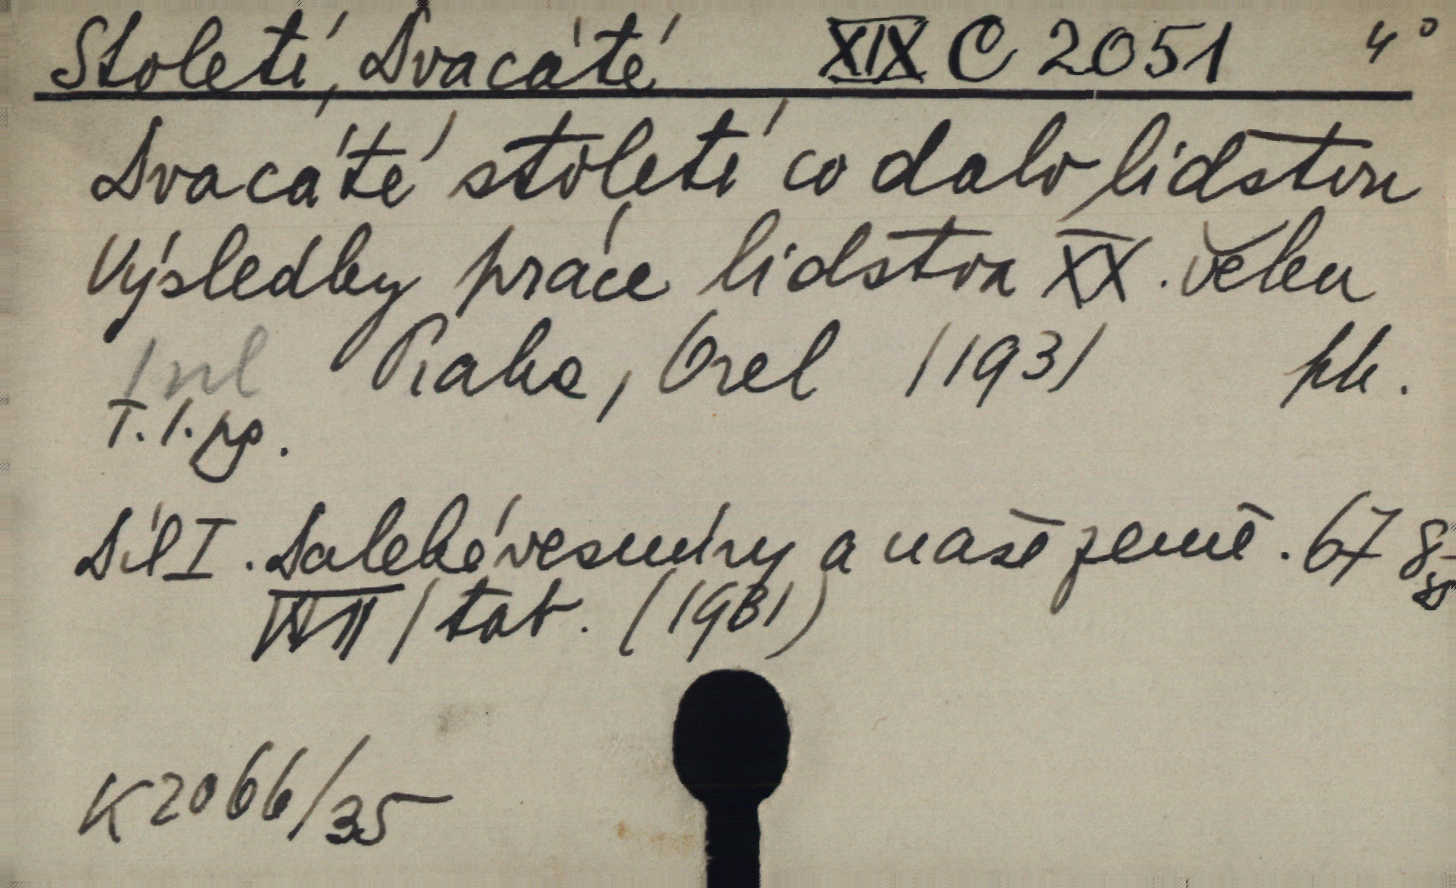 Století, Dvacáté XIX C 2051 4°
Dvacáté století co dalo lidstvu
Výsledky práce lidstva XX. věku
1 svl Praha, Orel /1931 pk.
T. 1. pg.
Díl I. Daleké vesmíry a naše země. 67
VIII / tab. (1931)
K 2066/35